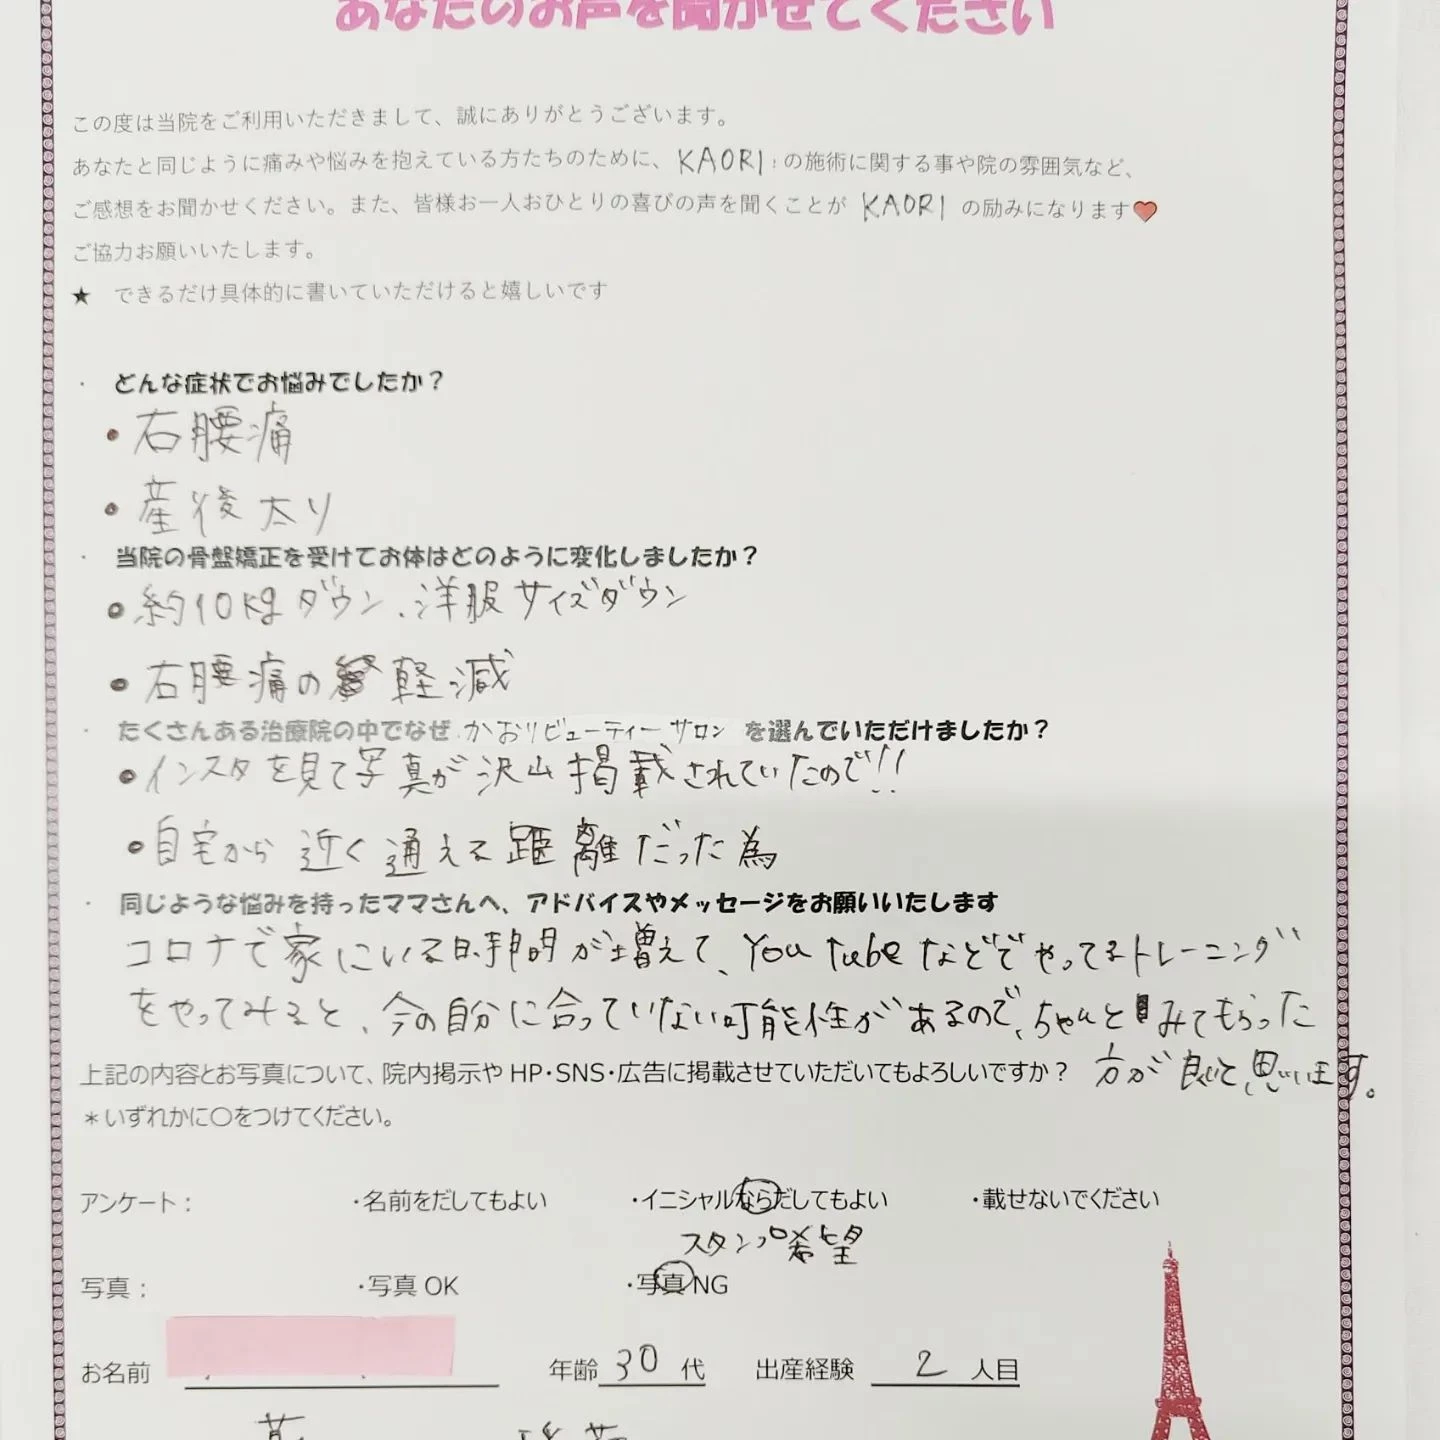 あなたのお声を聞かせてください
この度は当院をご利用いただきまして、誠にありがとうございます。
あなたと同じように痛みや悩みを抱えている方たちのために、KAORI の施術に関する事や院の雰囲気など、
ご感想をお聞かせください。また、皆様お一人おひとりの喜びの声を聞くことが KAORI の励みになります❤
ご協力お願いいたします。
★ できるだけ具体的に書いていただけると嬉しいです
・ どんな症状でお悩みでしたか？
・右腰痛
・産後太り
・ 当院の骨盤矯正を受けてお体はどのように変化しましたか？
・約10kgダウン、洋服サイズダウン
・右腰痛の軽減
・ たくさんある治療院の中でなぜ かおりビューティーサロン を選んでいただけましたか？
・インスタを見て写真が沢山掲載されていたので!!
・自宅から近く通える距離だった為
・ 同じような悩みを持ったママさんへ、アドバイスやメッセージをお願いいたします
コロナで家にいる時間が増えて、You tubeなどでやってるトレーニング
をやってみると、今の自分に合っていない可能性があるので、ちゃんとみてもらった
方が良いと思います。
上記の内容とお写真について、院内掲示や HP・SNS・広告に掲載させていただいてもよろしいですか？
＊いずれかに〇をつけてください。
アンケート： ・名前をだしてもよい ・イニシャルならだしてもよい ・載せないでください
スタンプ希望
写真： ・写真 OK ・写真 NG
お名前 年齢 30 代 出産経験 2 人目